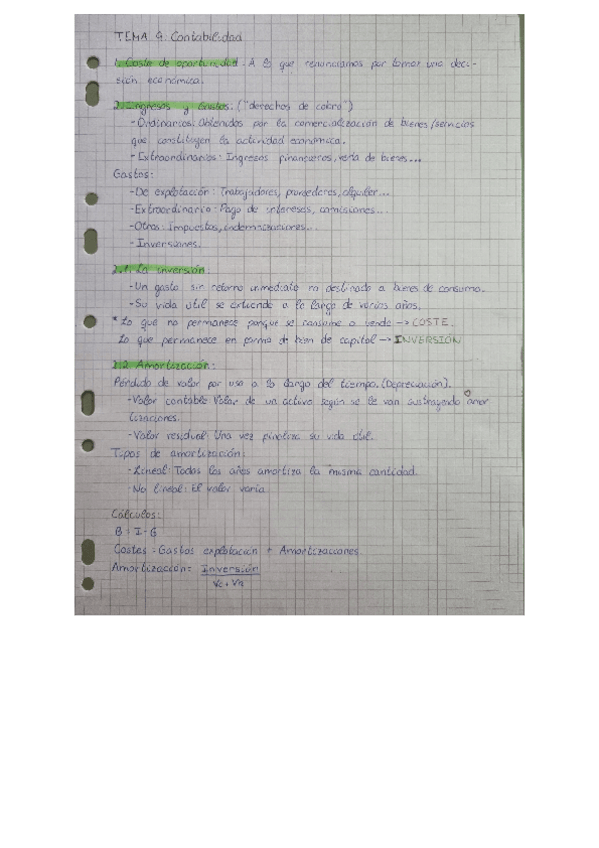 TEMA 9: Contabilidad
1. Coste de oportunidad: A lo que renunciamos por tomar una deci-
sión económica.
2. Ingresos y Gastos: ("derechos de cobro")
- Ordinarios: Obtenidos por la comercialización de bienes/servicios
que constituyen la actividad económica.
- Extraordinarios: Ingresos financieros, venta de bienes...
Gastos:
- De explotación: Trabajadores, proveedores, alquiler...
- Extraordinario: Pago de intereses, comisiones...
- Otros: Impuestos, indemnizaciones...
- Inversiones.
2.1. La inversión:
- Un gasto sin retorno inmediato no destinado a bienes de consumo.
- Su vida útil se extiende a lo largo de varios años.
* Lo que no permanece porque se consume o vende → COSTE.
Lo que permanece en forma de bien de capital → INVERSIÓN
2.2 Amortización:
Pérdida de valor por uso a lo largo del tiempo. (Depreciación).
- Valor contable: Valor de un activo según se le van sustrayendo amor
tizaciones.
- Valor residual: Una vez finaliza su vida útil.
Tipos de amortización:
- Lineal: Todos los años amortiza la misma cantidad.
- No lineal: El valor varía.
Cálculos:
B = I - G
Costes = Gastos explotación + Amortizaciones.
Amortización = Inversión